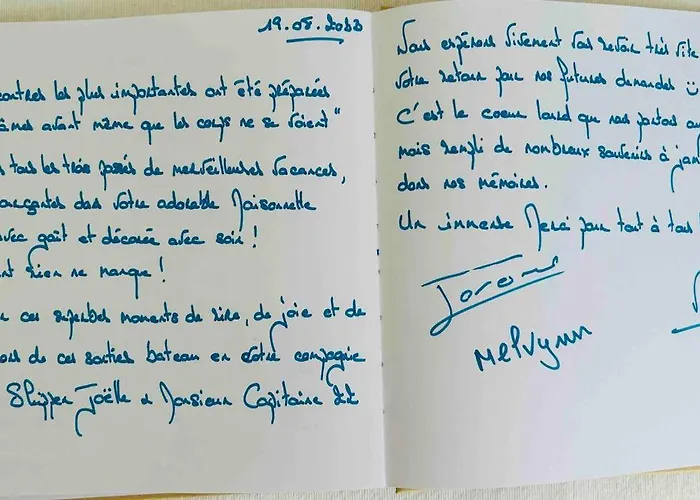 19.08.2023
contres les plus importantes ont été préparées
âmes avant même que les corps ne se voient"
s tous les trois passés de merveilleuses vacances,
orçantes dans votre adorable Maisonnette
avec goût et décorée avec soin !
nt rien ne manque !
ces superbes moments de rire, de joie et de
ors de ces sorties bateau en votre compagnie
Skipper Joëlle & Monsieur Capitaine
Nous espérons vivement vous revoir très vite
votre retour pour nos futures demandes
C'est le coeur lourd que nous partons
mais rempli de nombreux souvenirs à jam
dans nos mémoires.
Un immense Merci pour tout à tous
Jorome
Melvynn